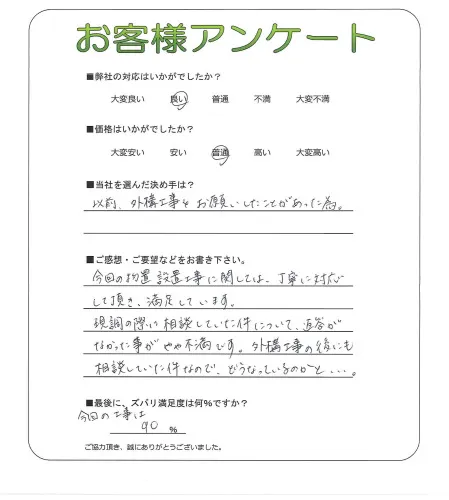 お客様アンケート
■弊社の対応はいかがでしたか？
大変良い 良い 普通 不満 大変不満
■価格はいかがでしたか？
大変安い 安い 普通 高い 大変高い
■当社を選んだ決め手は？
以前、外構工事をお願いしたことがあった為。
■ご感想・ご要望などをお書き下さい。
今回の物置設置工事に関しては、丁寧に対応
して頂き、満足しています。
現調の際に相談していた件について、返答が
なかった事がやや不満です。外構工事の後にも
相談していた件なので、どうなっているのかと・・・。
■最後に、ズバリ満足度は何%ですか？
今回の工事は
90 %
ご協力頂き、誠にありがとうございました。